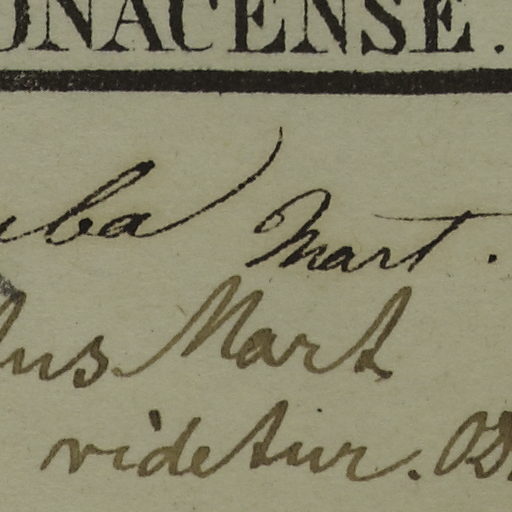 ONACENSE.
uba Mart.
tus Mart
videtur. OD